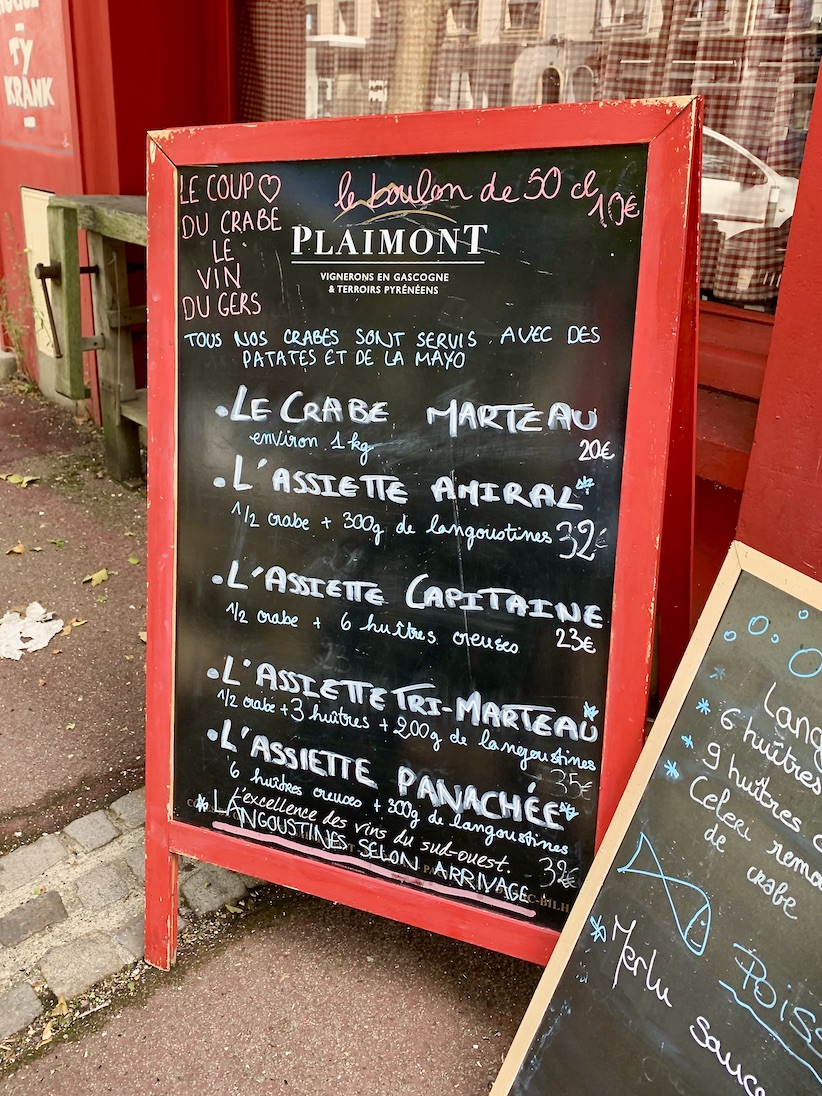 TY
KRANK
LE COUP ♡
DU CRABE
LE
VIN
DU GERS
le boulon de 50 cl
10€
PLAIMONT
VIGNERONS EN GASCOGNE
& TERROIRS PYRÉNÉENS
TOUS NOS CRABES SONT SERVIS AVEC DES
PATATES ET DE LA MAYO
• LE CRABE MARTEAU
environ 1 kg
20€
• L'ASSIETTE AMIRAL*
1/2 crabe + 300g de langoustines 32€
• L'ASSIETTE CAPITAINE
1/2 crabe + 6 huîtres creuses 23€
• L'ASSIETTE TRI-MARTEAU*
1/2 crabe + 3 huîtres + 200g de langoustines
35€
• L'ASSIETTE PANACHÉE*
6 huîtres creuses + 300g de langoustines
L'excellence des vins du sud-ouest.
* LANGOUSTINES SELON ARRIVAGE
Lang
* 6 huîtres
* 9 huîtres
* Celeri remo
de crabe
POISS
* Merlu sauce